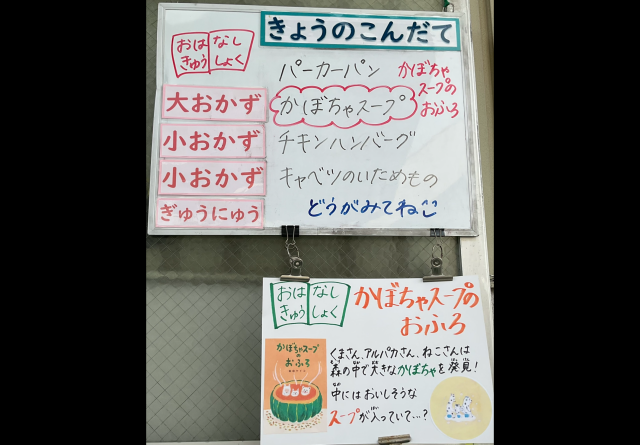 きょうのこんだて
おは なし
きゅう しょく
パーカーパン
かぼちゃ
スープの
おふろ
大おかず
かぼちゃスープ
小おかず
チキンハンバーグ
小おかず
キャベツのいためもの
ぎゅうにゅう
どうがみてね
おは なし
きゅう しょく
かぼちゃスープの
おふろ
かぼちゃスープ
の
おふろ
くまさん、アルパカさん、ねこさんは
森の中で大きなかぼちゃを発見!
中にはおいしそうな
スープが入っていて…?